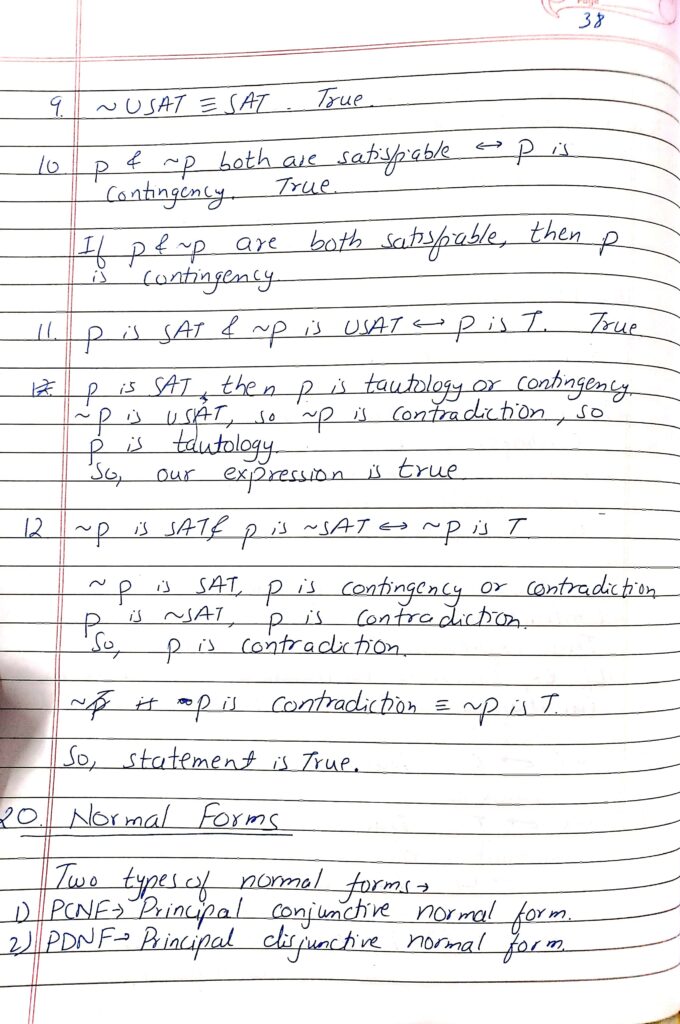 Page
38
9. ~USAT ≡ SAT. True.
10 p & ~p both are satisfiable ↔ p is
contingency. True.
If p & ~p are both satisfiable, then p
is contingency.
11. p is SAT & ~p is USAT ↔ p is T. True
p is SAT, then p is tautology or contingency.
~p is USAT, so ~p is contradiction, so
p is tautology.
So, our expression is true
12 ~p is SAT & p is ~SAT ↔ ~p is T
~p is SAT, p is contingency or contradiction
p is ~SAT, p is contradiction.
So, p is contradiction.
p is contradiction ≡ ~p is T.
So, statement is True.
20. Normal Forms
Two types of normal forms→
1) PCNF→ Principal conjunctive normal form.
2) PDNF→ Principal disjunctive normal form.